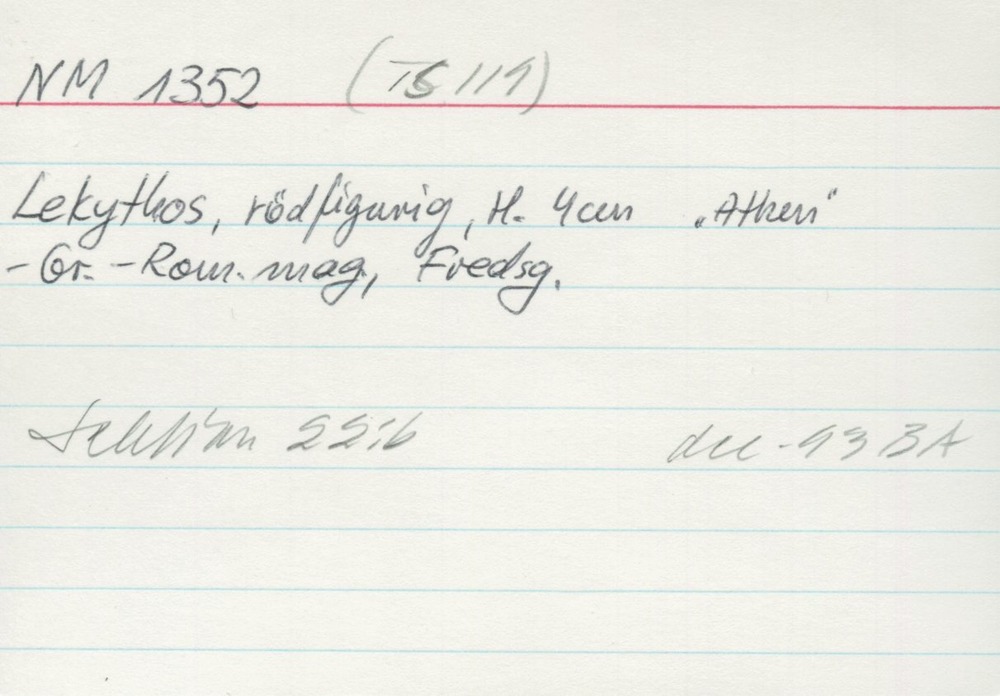 NM 1352 (TS 119)
Lekythos, rödfigurig, H. 4cm „Athen"
- Gr. - Rom. mag, Fredsg.
Sektion 22:6
dec -93 BA